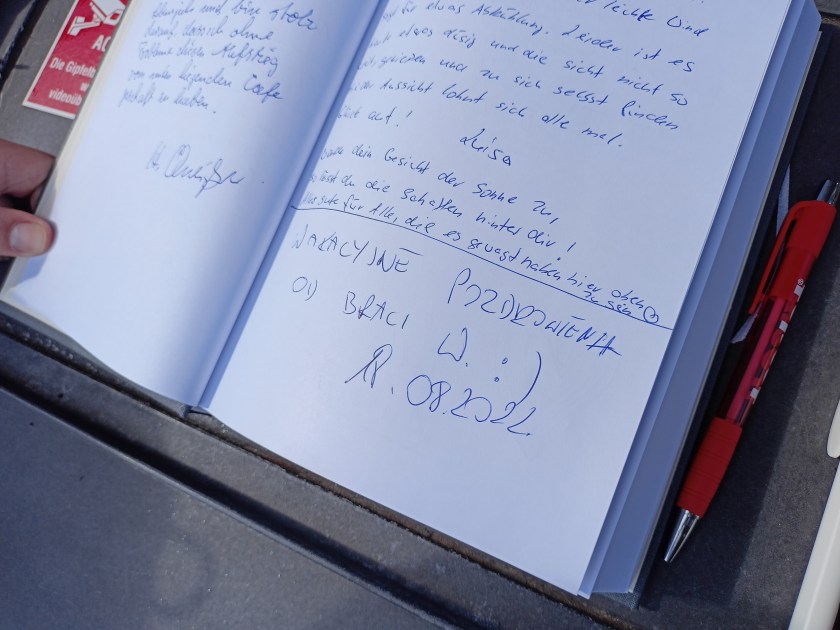 AC
Die Gipfelb
videoüb
und bin stolz
darauf, dass ich ohne
Probleme diesen Aufstieg
von mir liegenden
gehabt zu haben.
leichte Wind
für etwas Abkühlung. Leider ist es
etwas düsig und die Sicht nicht so
geniessen und zu sich selbst finden
Aussicht lohnt sich alle mal.
auf!
Luisa
dein Gesicht der Sonne zu,
lässt du die Schatten hinter dir!
Gute für Alle, die es gewagt haben hier oben
zu sein
WAKACYJNE POZDROWIENIA
OD BRACI W. :)
18.08.2022.